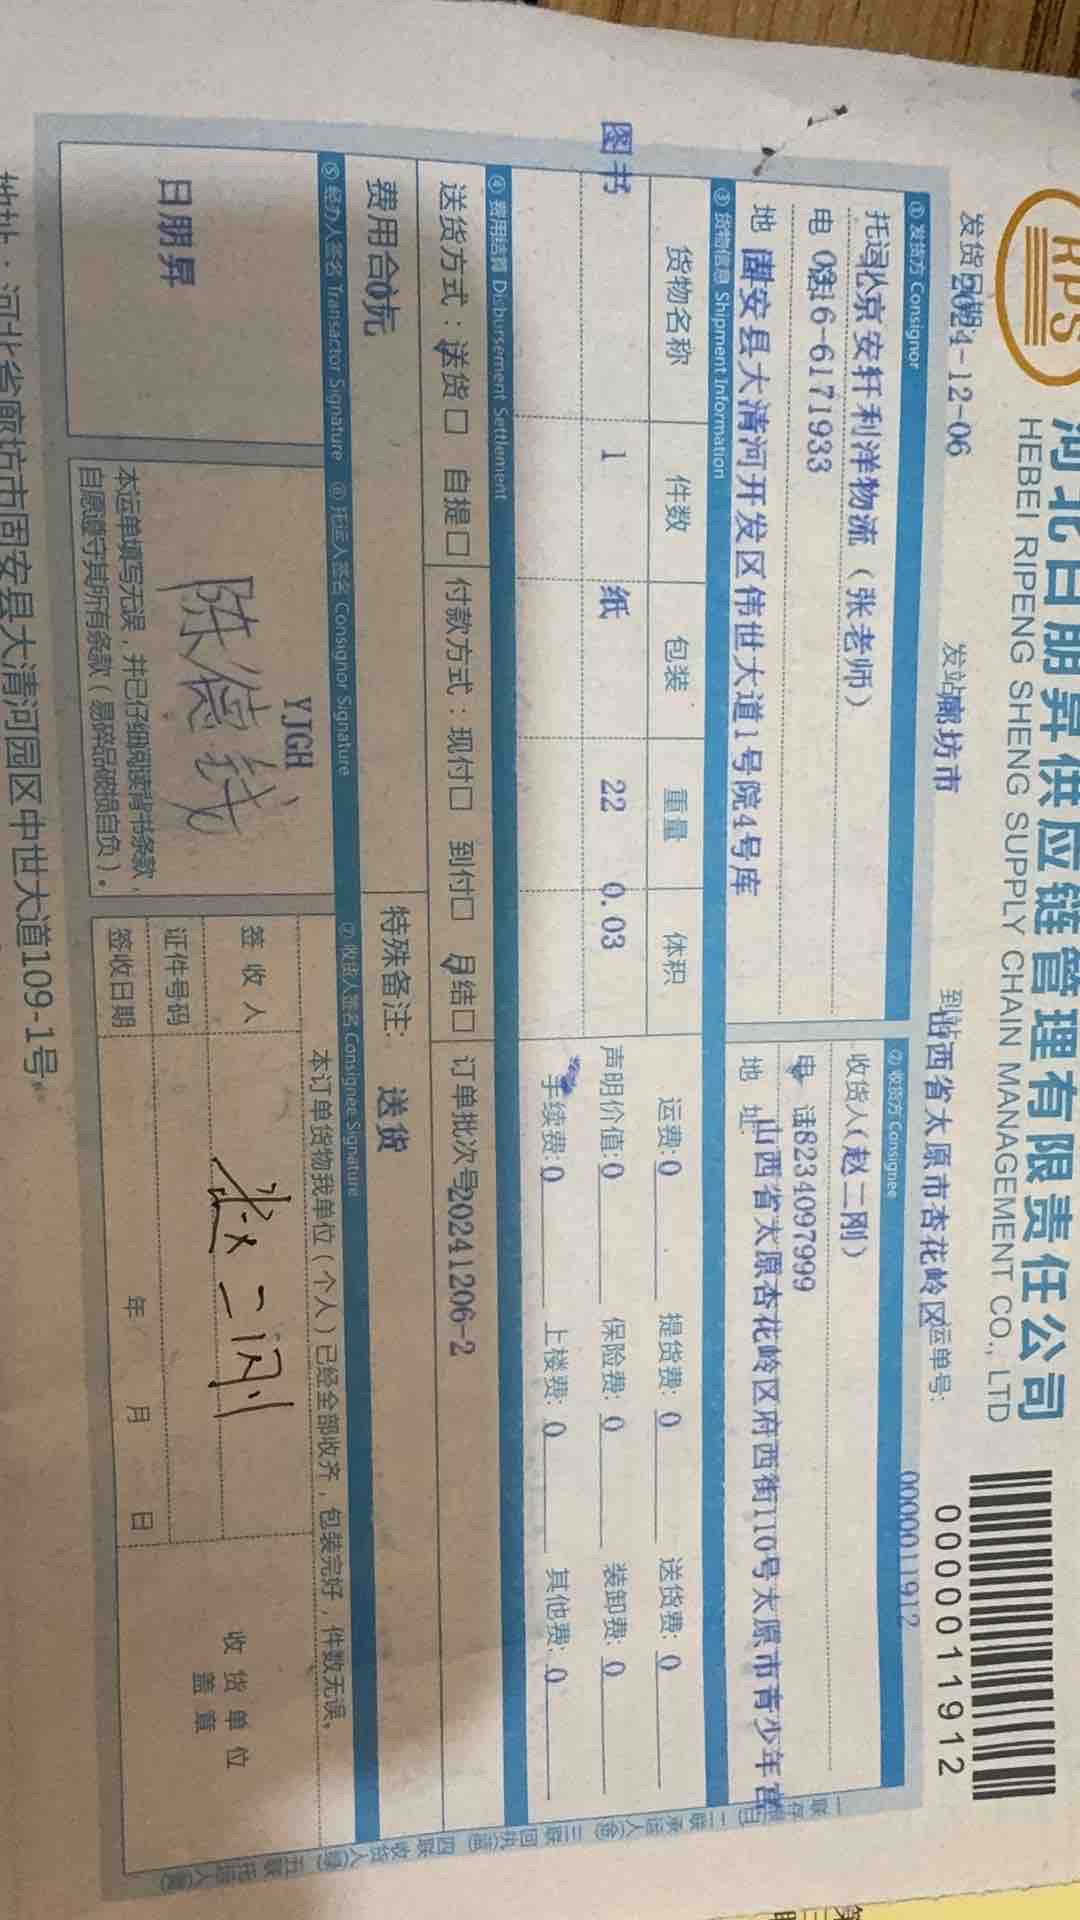 RPS
河北日朋昇供应链管理有限责任公司
HEBEI RIPENG SHENG SUPPLY CHAIN MANAGEMENT CO., LTD
0000011912
发货日期 2024-12-06 发站 廊坊市 到站 山西省太原市杏花岭区 运单号: 0000011912
① 发货方 Consignor ② 收货方 Consignee
托运人 京安轩利洋物流（张老师） 收货人(赵二刚)
电 0316-6171933 电 话 8234097999
地 固安县大清河开发区伟世大道1号院4号库 地 址 山西省太原杏花岭区府西街110号太原市青少年宫
③ 货物信息 Shipment Information
货物名称 件数 包装 重量 体积 运费:0 提货费: 0 送货费: 0
图书 1 纸 22 0.03 声明价值:0 保险费: 0 装卸费: 0
手续费:0 上楼费: 0 其他费: 0
④ 费用结算 Disbursement Settlement
送货方式：送货☐ 自提☐ 付款方式：现付☐ 到付☐ 月结☐ 订单批次号20241206-2
费用合 0元 特殊备注: 送货
⑤ 经办人签名 Transactor Signature ⑥ 托运人签名 Consignor Signature ⑦ 收货人签名 Consignee Signature
日朋昇
YJGH
本运单填写无误，并已仔细阅读背书条款，
自愿遵守其所有条款（易碎品破损自负）。
本订单货物我单位（个人）已经全部收齐，包装完好，件数无误。
签收人 赵二刚
证件号码
签收日期 年 月 日
收货单位
盖章
地址：河北省廊坊市固安县大清河园区中世大道109-1号